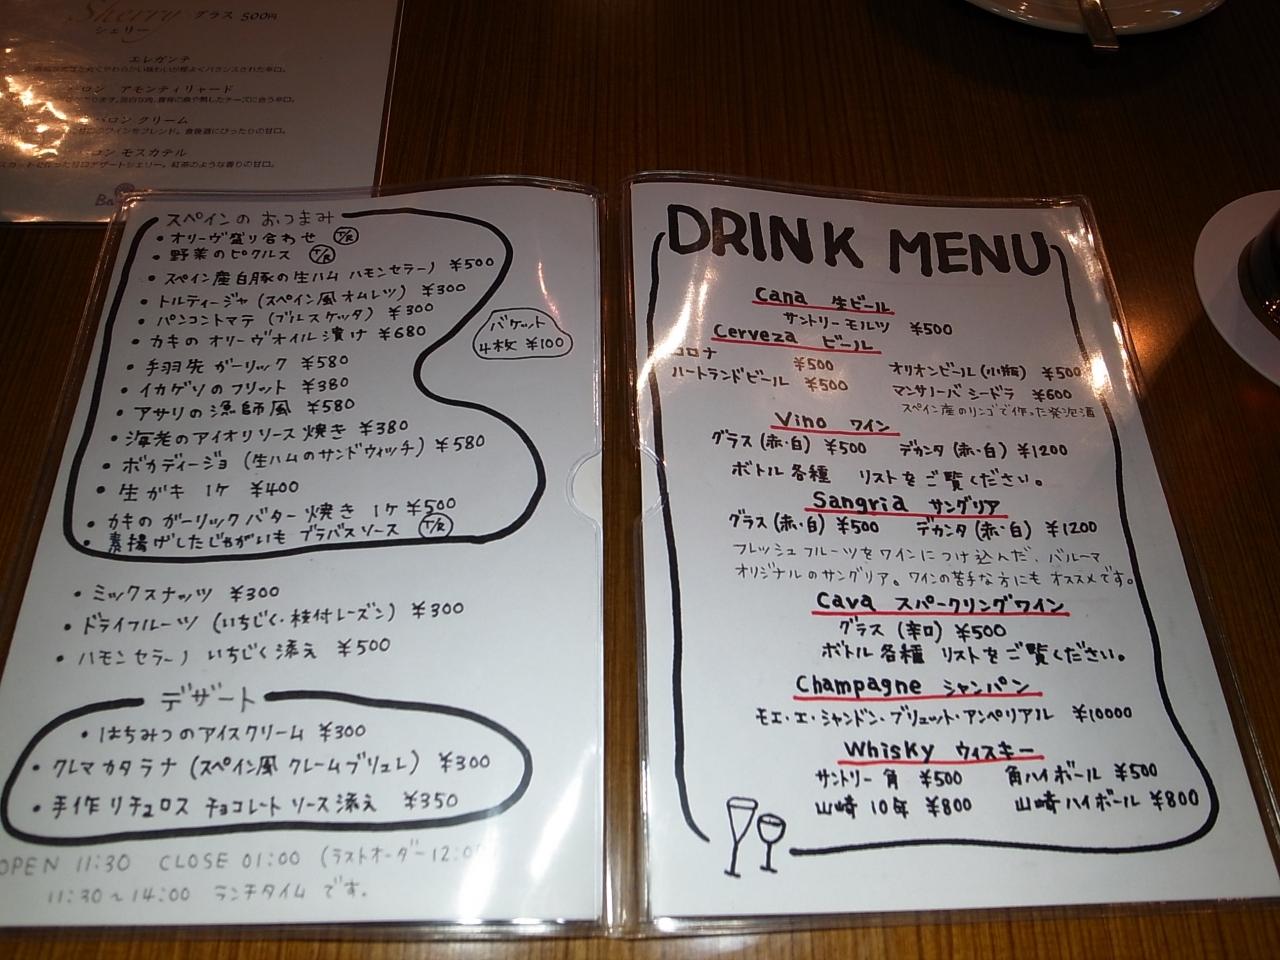 Sherry グラス 500円
シェリー
エレガンテ
アモンティリャード
クリーム
モスカテル
スペインの おつまみ
・オリーヴ盛り合わせ T/R
・野菜のピクルス T/R
・スペイン産白豚の生ハム ハモンセラーノ ¥500
・トルティージャ (スペイン風オムレツ) ¥300
・パンコントマテ (ブルスケッタ) ¥300
・カキの オリーヴオイル漬け ¥680
・手羽先 ガーリック ¥580
・イカゲソのフリット ¥380
・アサリの漁師風 ¥580
・海老のアイオリソース焼き ¥380
・ボカディージョ (生ハムのサンドウィッチ) ¥580
・生ガキ 1ケ ¥400
・カキの ガーリックバター 焼き 1ケ ¥500
・素揚げしたじゃがいも ブラバスソース T/R
バゲット
4枚 ¥100
・ミックスナッツ ¥300
・ドライフルーツ (いちじく・枝付レーズン) ¥300
・ハモンセラーノ いちじく添え ¥500
デザート
・はちみつのアイスクリーム ¥300
・クレマ カタラナ (スペイン風 クレームブリュレ) ¥300
・手作りチュロス チョコレートソース添え ¥350
OPEN 11:30 CLOSE 01:00 (ラストオーダー12:00
11:30～14:00 ランチタイム です。
DRINK MENU
Cana 生ビール
サントリーモルツ ¥500
Cerveza ビール
コロナ ¥500 オリオンビール(小瓶) ¥500
ハートランドビール ¥500 マンサナーバ シードラ ¥600
スペイン産のリンゴで作った発泡酒
Vino ワイン
グラス (赤・白) ¥500 デカンタ (赤・白) ¥1200
ボトル各種 リストをご覧ください。
Sangria サングリア
グラス (赤・白) ¥500 デカンタ (赤・白) ¥1200
フレッシュフルーツをワインにつけ込んだ、バルーマ
オリジナルのサングリア。ワインの苦手な方にも オススメです。
Cava スパークリングワイン
グラス (辛口) ¥500
ボトル 各種 リストをご覧ください。
Champagne シャンパン
モエ・エ・シャンドン・ブリュット・アンペリアル ¥10000
Whisky ウィスキー
サントリー 角 ¥500 角ハイボール ¥500
山崎 10年 ¥800 山崎ハイボール ¥800